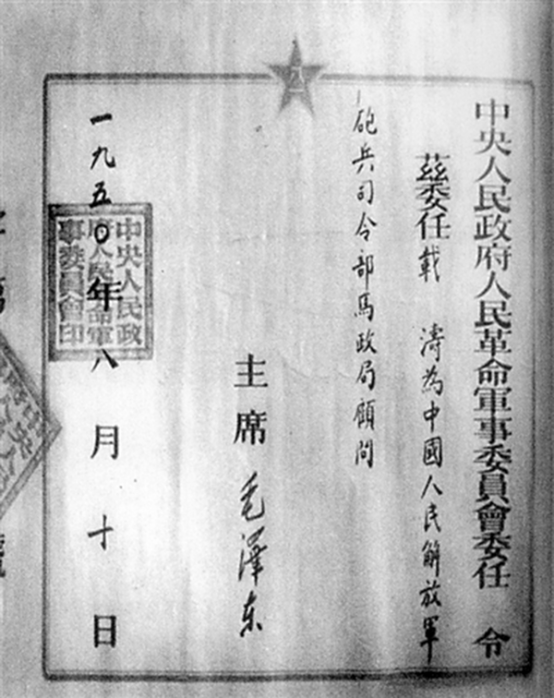 八一
中央人民政府人民革命軍事委員會委任令
茲委任載濤為中國人民解放軍
砲兵司令部馬政局顧問
主席毛澤东
一九五〇年八月十日
中央人民政
府人民革命軍
事委員會印